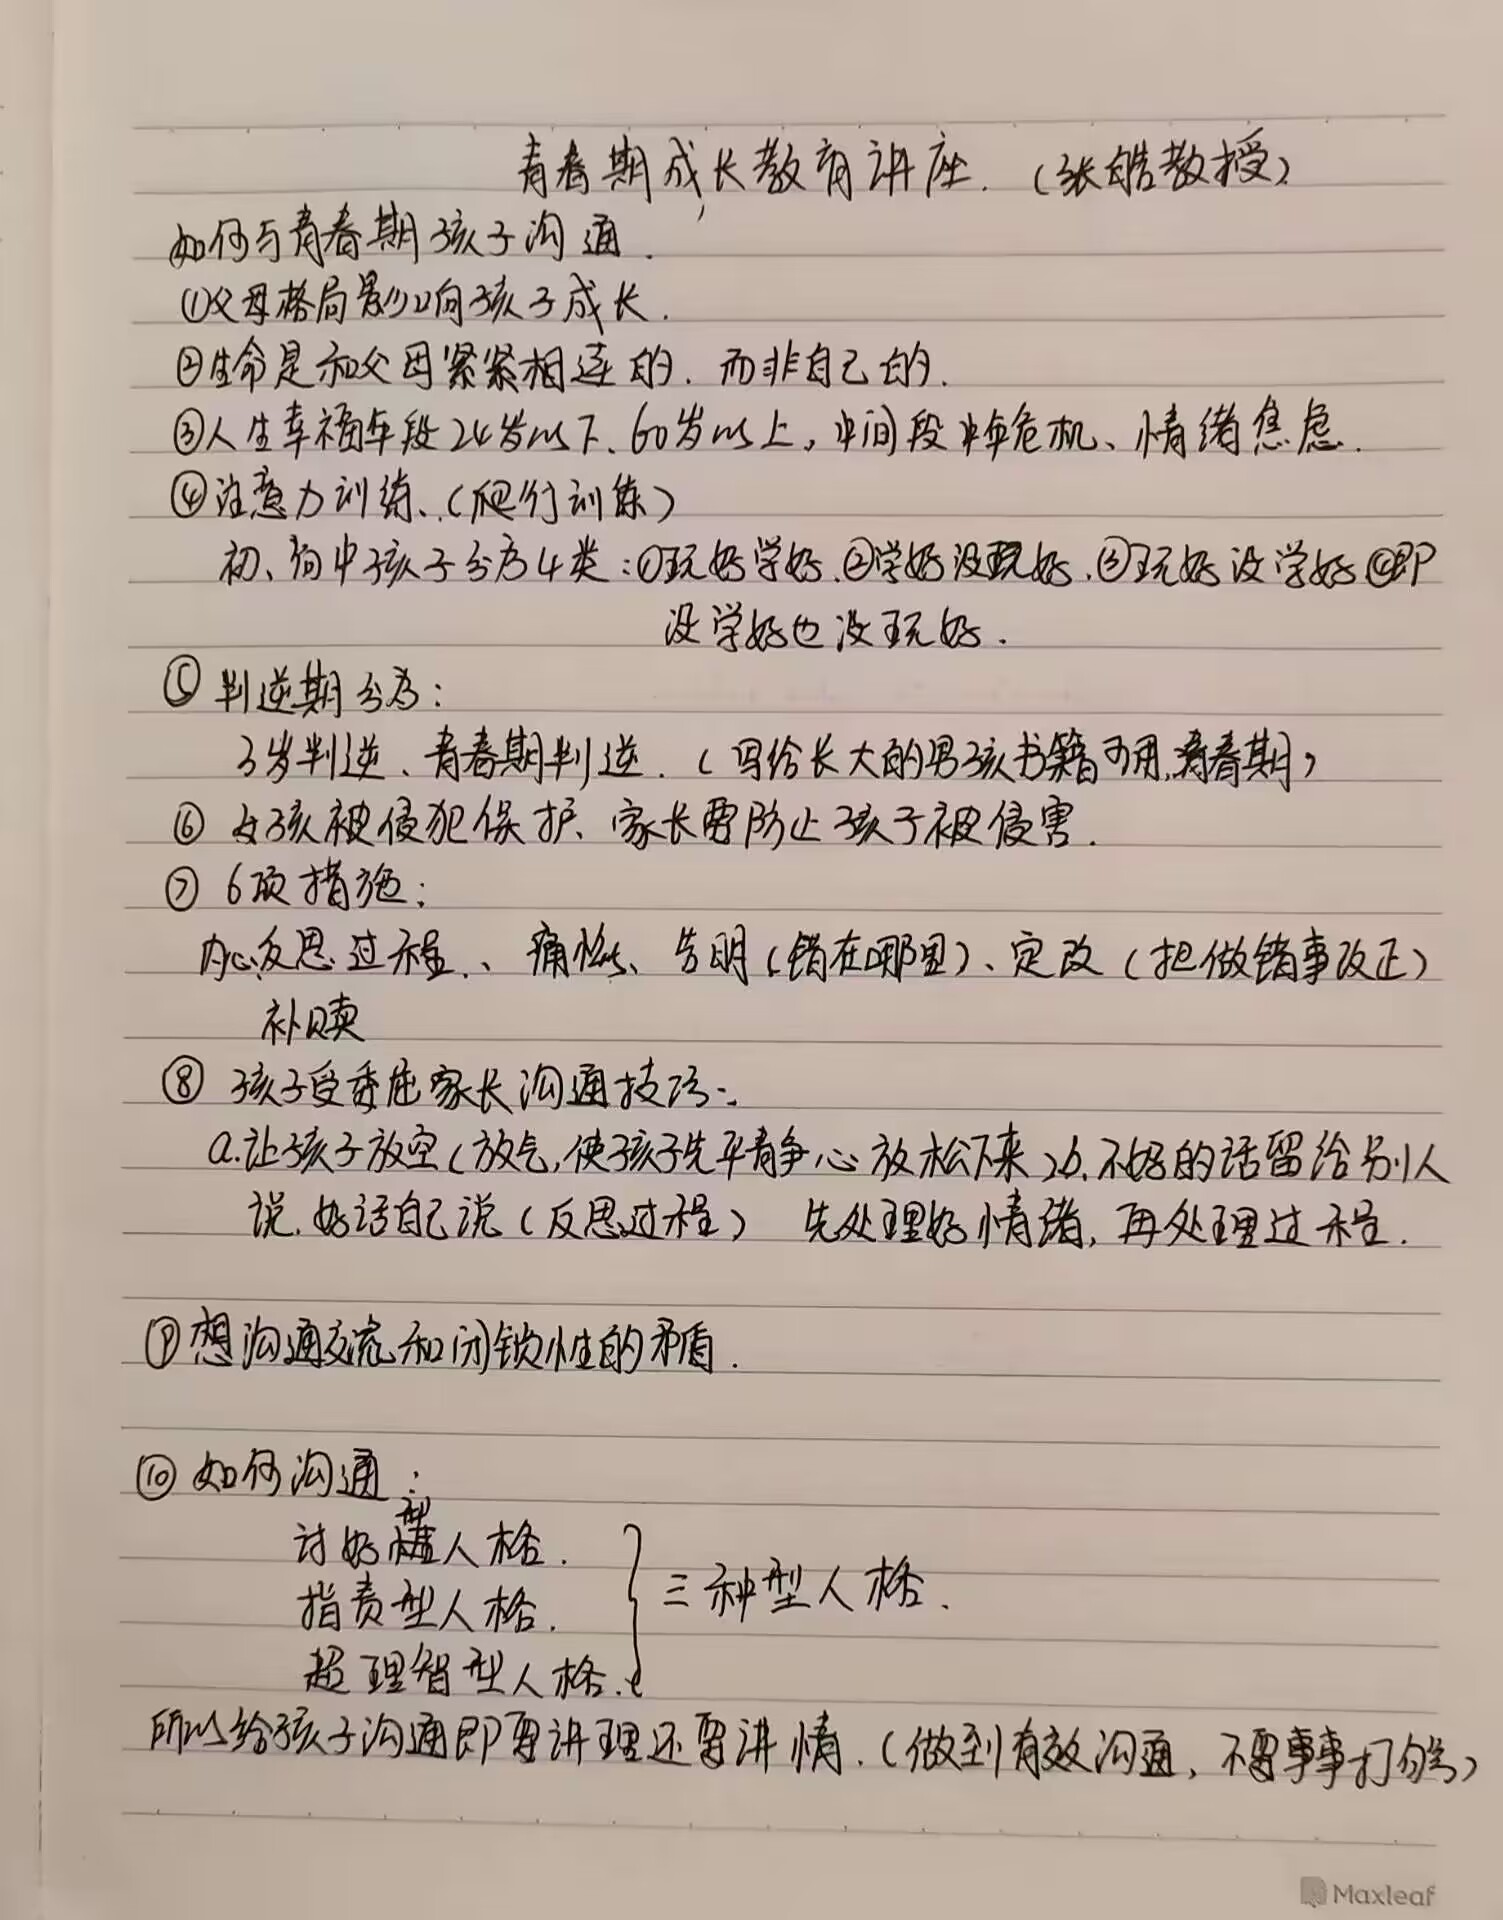 青春期成长教育讲座.（张皓教授）
如何与青春期孩子沟通.
①父母格局影响孩子成长.
②生命是和父母紧紧相连的.而非自己的.
③人生幸福年段24岁以下、60岁以上,中间段中年危机、情绪焦虑.
④注意力训练、（爬行训练）
初、高中孩子分为4类:①玩好学好.②学好没玩好.③玩好没学好④即
没学好也没玩好.
⑤判逆期分为:
3岁判逆、青春期判逆.（写给长大的男孩书籍可用,青春期）
⑥女孩被侵犯保护、家长要防止孩子被侵害.
⑦6项措施:
内心反思过程、痛悔、告明（错在哪里）、定改（把做错事改正）
补赎
⑧孩子受委屈家长沟通技巧:
a.让孩子放空（放气,使孩子先平静心放松下来）b.不好的话留给别人
说.好话自己说（反思过程） 先处理好情绪,再处理过程.
⑨想沟通交流和闭锁性的矛盾.
⑩如何沟通:
讨好型人格.
指责型人格. 三种型人格.
超理智型人格.
所以给孩子沟通即要讲理还要讲情.（做到有效沟通,不要事事打
Maxleaf